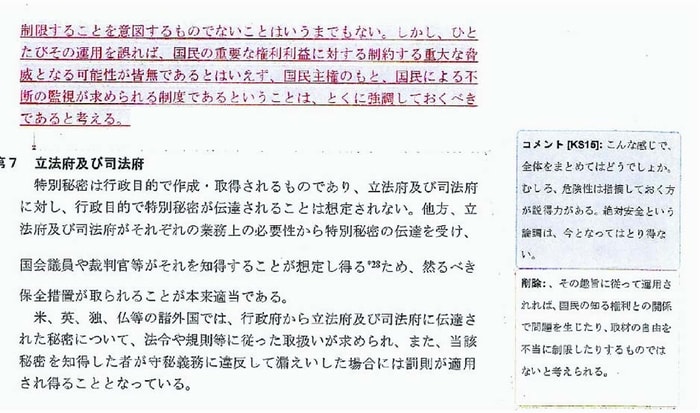 制限することを意図するものでないことはいうまでもない。しかし、ひと
たびその運用を誤れば、国民の重要な権利利益に対する制約する重大な脅
威となる可能性が皆無であるとはいえず、国民主権のもと、国民による不
断の監視が求められる制度であるということは、とくに強調しておくべき
であると考える。
第7 立法府及び司法府
特別秘密は行政目的で作成・取得されるものであり、立法府及び司法府
に対し、行政目的で特別秘密が伝達されることは想定されない。他方、立
法府及び司法府がそれぞれの業務上の必要性から特別秘密の伝達を受け、
国会議員や裁判官等がそれを知得することが想定し得る*28ため、然るべき
保全措置が取られることが本来適当である。
米、英、独、仏等の諸外国では、行政府から立法府及び司法府に伝達さ
れた秘密について、法令や規則等に従った取扱いが求められ、また、当該
秘密を知得した者が守秘義務に違反して漏えいした場合には罰則が適用
され得ることとなっている。
コメント [KS15]: こんな感じで、
全体をまとめてはどうでしょうか。
むしろ、危険性は指摘しておく方
が説得力がある。絶対安全という
論調は、今となってはとり得な
い。
削除: 、その趣旨に従って運用さ
れれば、国民の知る権利との関係
で問題を生じたり、取材の自由を
不当に制限したりするものでは
ないと考えられる。